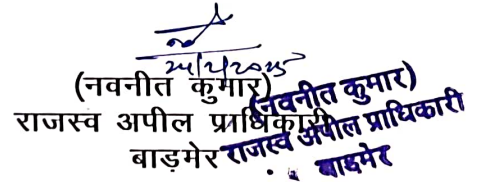 24/2/2025
(नवनीत कुमार)
राजस्व अपील प्राधिकारी
बाड़मेर
(नवनीत कुमार)
राजस्व अपील प्राधिकारी
बाडमेर